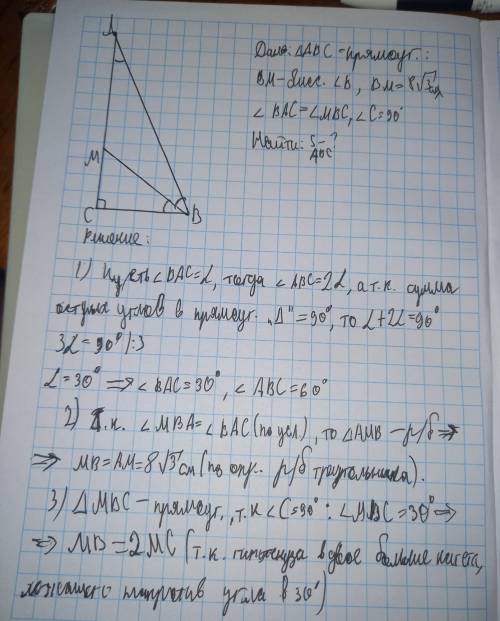 A
M
C
B
Дано: △ABC - прямоуг.:
BM - бисс. ∠B, BM = 8√3 см
∠BAC = ∠MBC, ∠C = 90°
Найти: S ABC - ?
Решение:
1) Пусть ∠BAC = α, тогда ∠ABC = 2α, а т.к. сумма
острых углов в прямоуг. "Δ" = 90°, то α + 2α = 90°
3α = 90° |:3
α = 30° => ∠BAC = 30°, ∠ABC = 60°
2) Т.к. ∠MBA = ∠BAC (по усл), то △AMB - р/б =>
=> MB = AM = 8√3 см (по опр. р/б треугольника).
3) △MBC - прямоуг., т.к ∠C = 90° : ∠MBC = 30° =>
=> MB = 2MC (т.к. гипотенуза вдвое больше катета,
лежащего напротив угла в 30°)